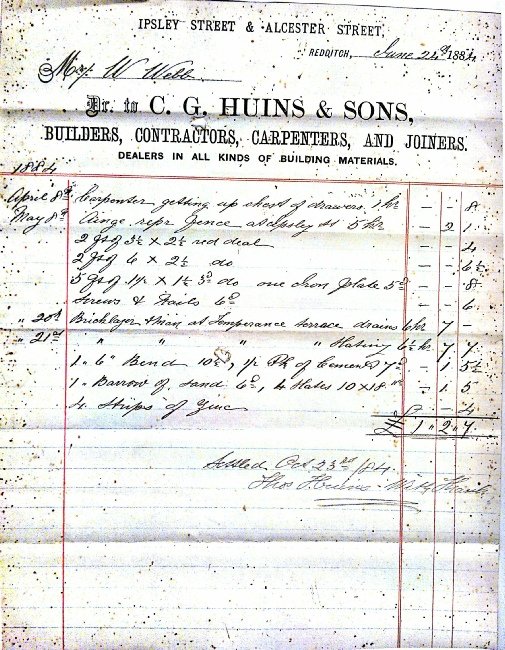 IPSLEY STREET & ALCESTER STREET,
REDDITCH, June 24th 1884
W Webb
Dr. to C. G. HUINS & SONS,
BUILDERS, CONTRACTORS, CARPENTERS, AND JOINERS.
DEALERS IN ALL KINDS OF BUILDING MATERIALS.
1884
April 8th Carpenter getting up chest of drawers 1 hr - - 8
May 8th repr fence at Ipsley st 5 hr - 2 1
2 ft of 3½ x 2½ red deal - - 4
2 ft of 6 x 2½ do - - 6½
5 ft of do one Iron plate 5d - - 8
Screws & Nails 6d - - 6
" 20th Bricklayer & Man at Temperance terrace drains 6 hr 7 -
" 21st " " " Slating 6½ hr 7 7
1 " 6" Bend 10½, ½ Pk of Cement 7d - 1 5½
1 " Barrow of Sand 6d, 4 Slates 10 x 18 - 1 5
4 Strips of Zinc - 4
£ 1 " 2 " 7
Settled Oct 23rd /84
Thos Huins With Thanks